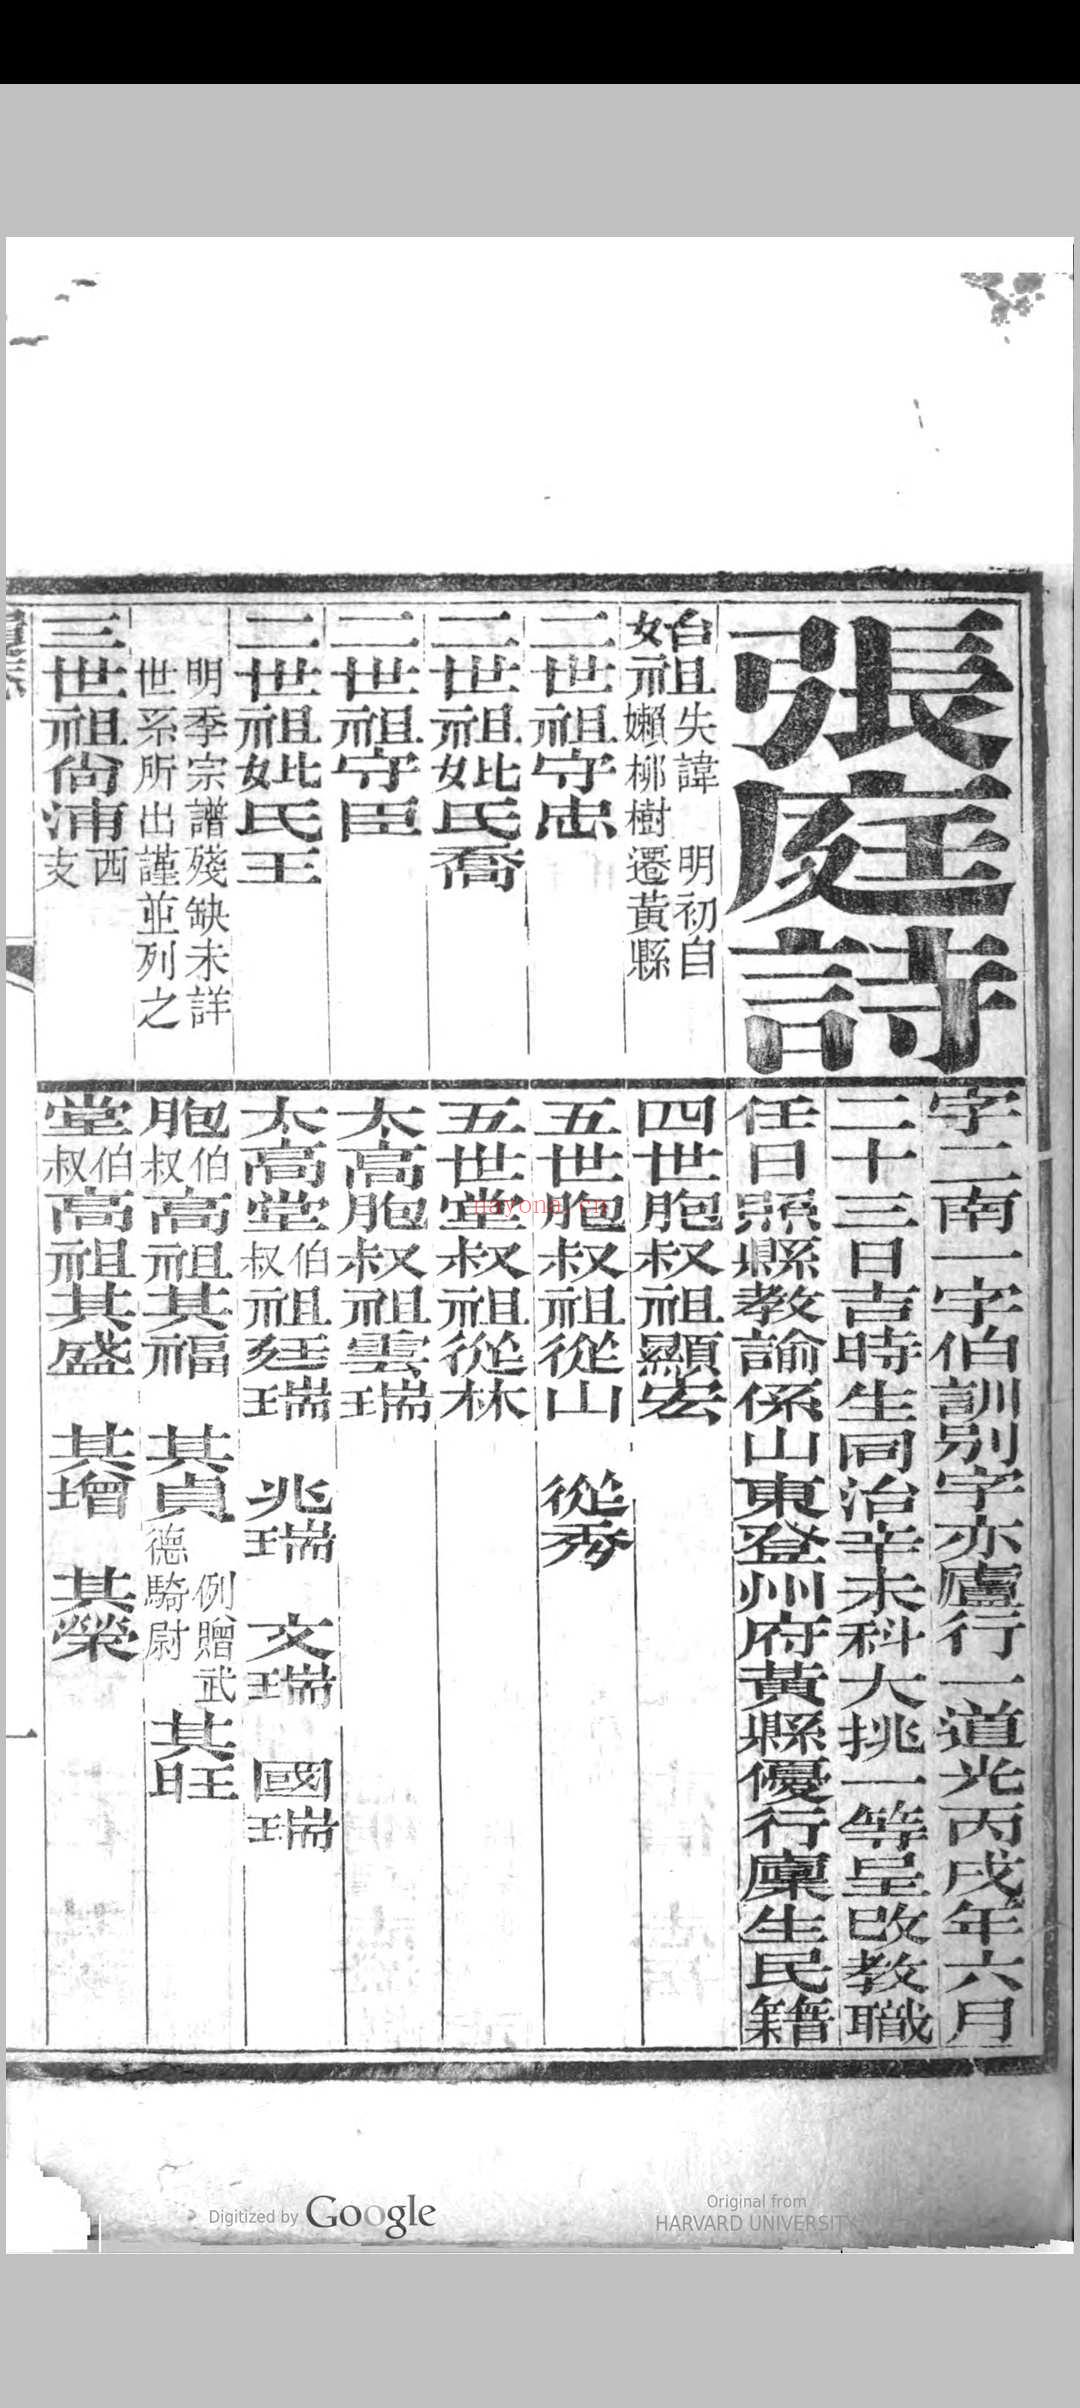 張庭詩
字二南一字伯訓别字亦廬行一道光丙戌年六月
二十三日吉時生同治辛未科大挑一等呈改教職
任日照縣教諭係山東登州府黃縣優行廩生民籍
始祖失諱 明初自
嬾栁樹遷黃縣
二世祖守忠
二世祖妣氏喬
二世祖守臣
二世祖妣氏王
明季宗譜殘缺未詳
世系所出謹並列之
三世祖尙浦西
支
四世胞叔祖顯宏
五世胞叔祖從山 從秀
五世堂叔祖從林
太高胞叔祖雲瑞
太高堂伯叔祖廷瑞 兆瑞 文瑞 國瑞
胞伯叔高祖其福 其貞例贈武德騎尉 其旺
堂伯叔高祖其盛 其增 其榮
一
nayona.cn
Digitized by Google
Original from
HARVARD UNIVERSITY